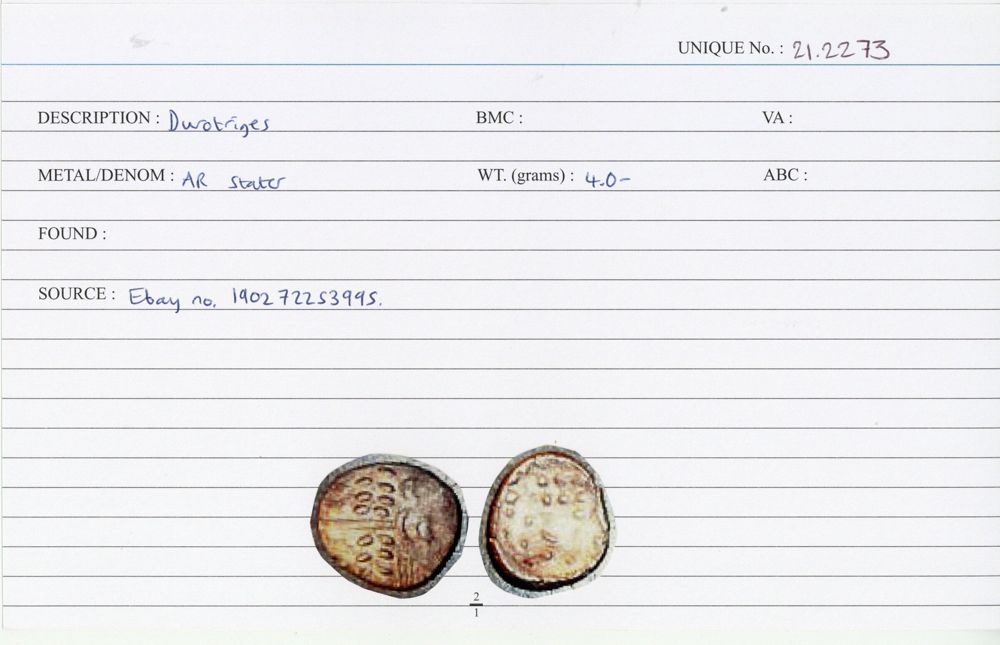 UNIQUE No. : 21.2273
DESCRIPTION : Durotriges BMC : VA :
METAL/DENOM : AR Stater WT. (grams) : 4.0-
ABC :
FOUND :
SOURCE : Ebay no. 190272253995.
2
1